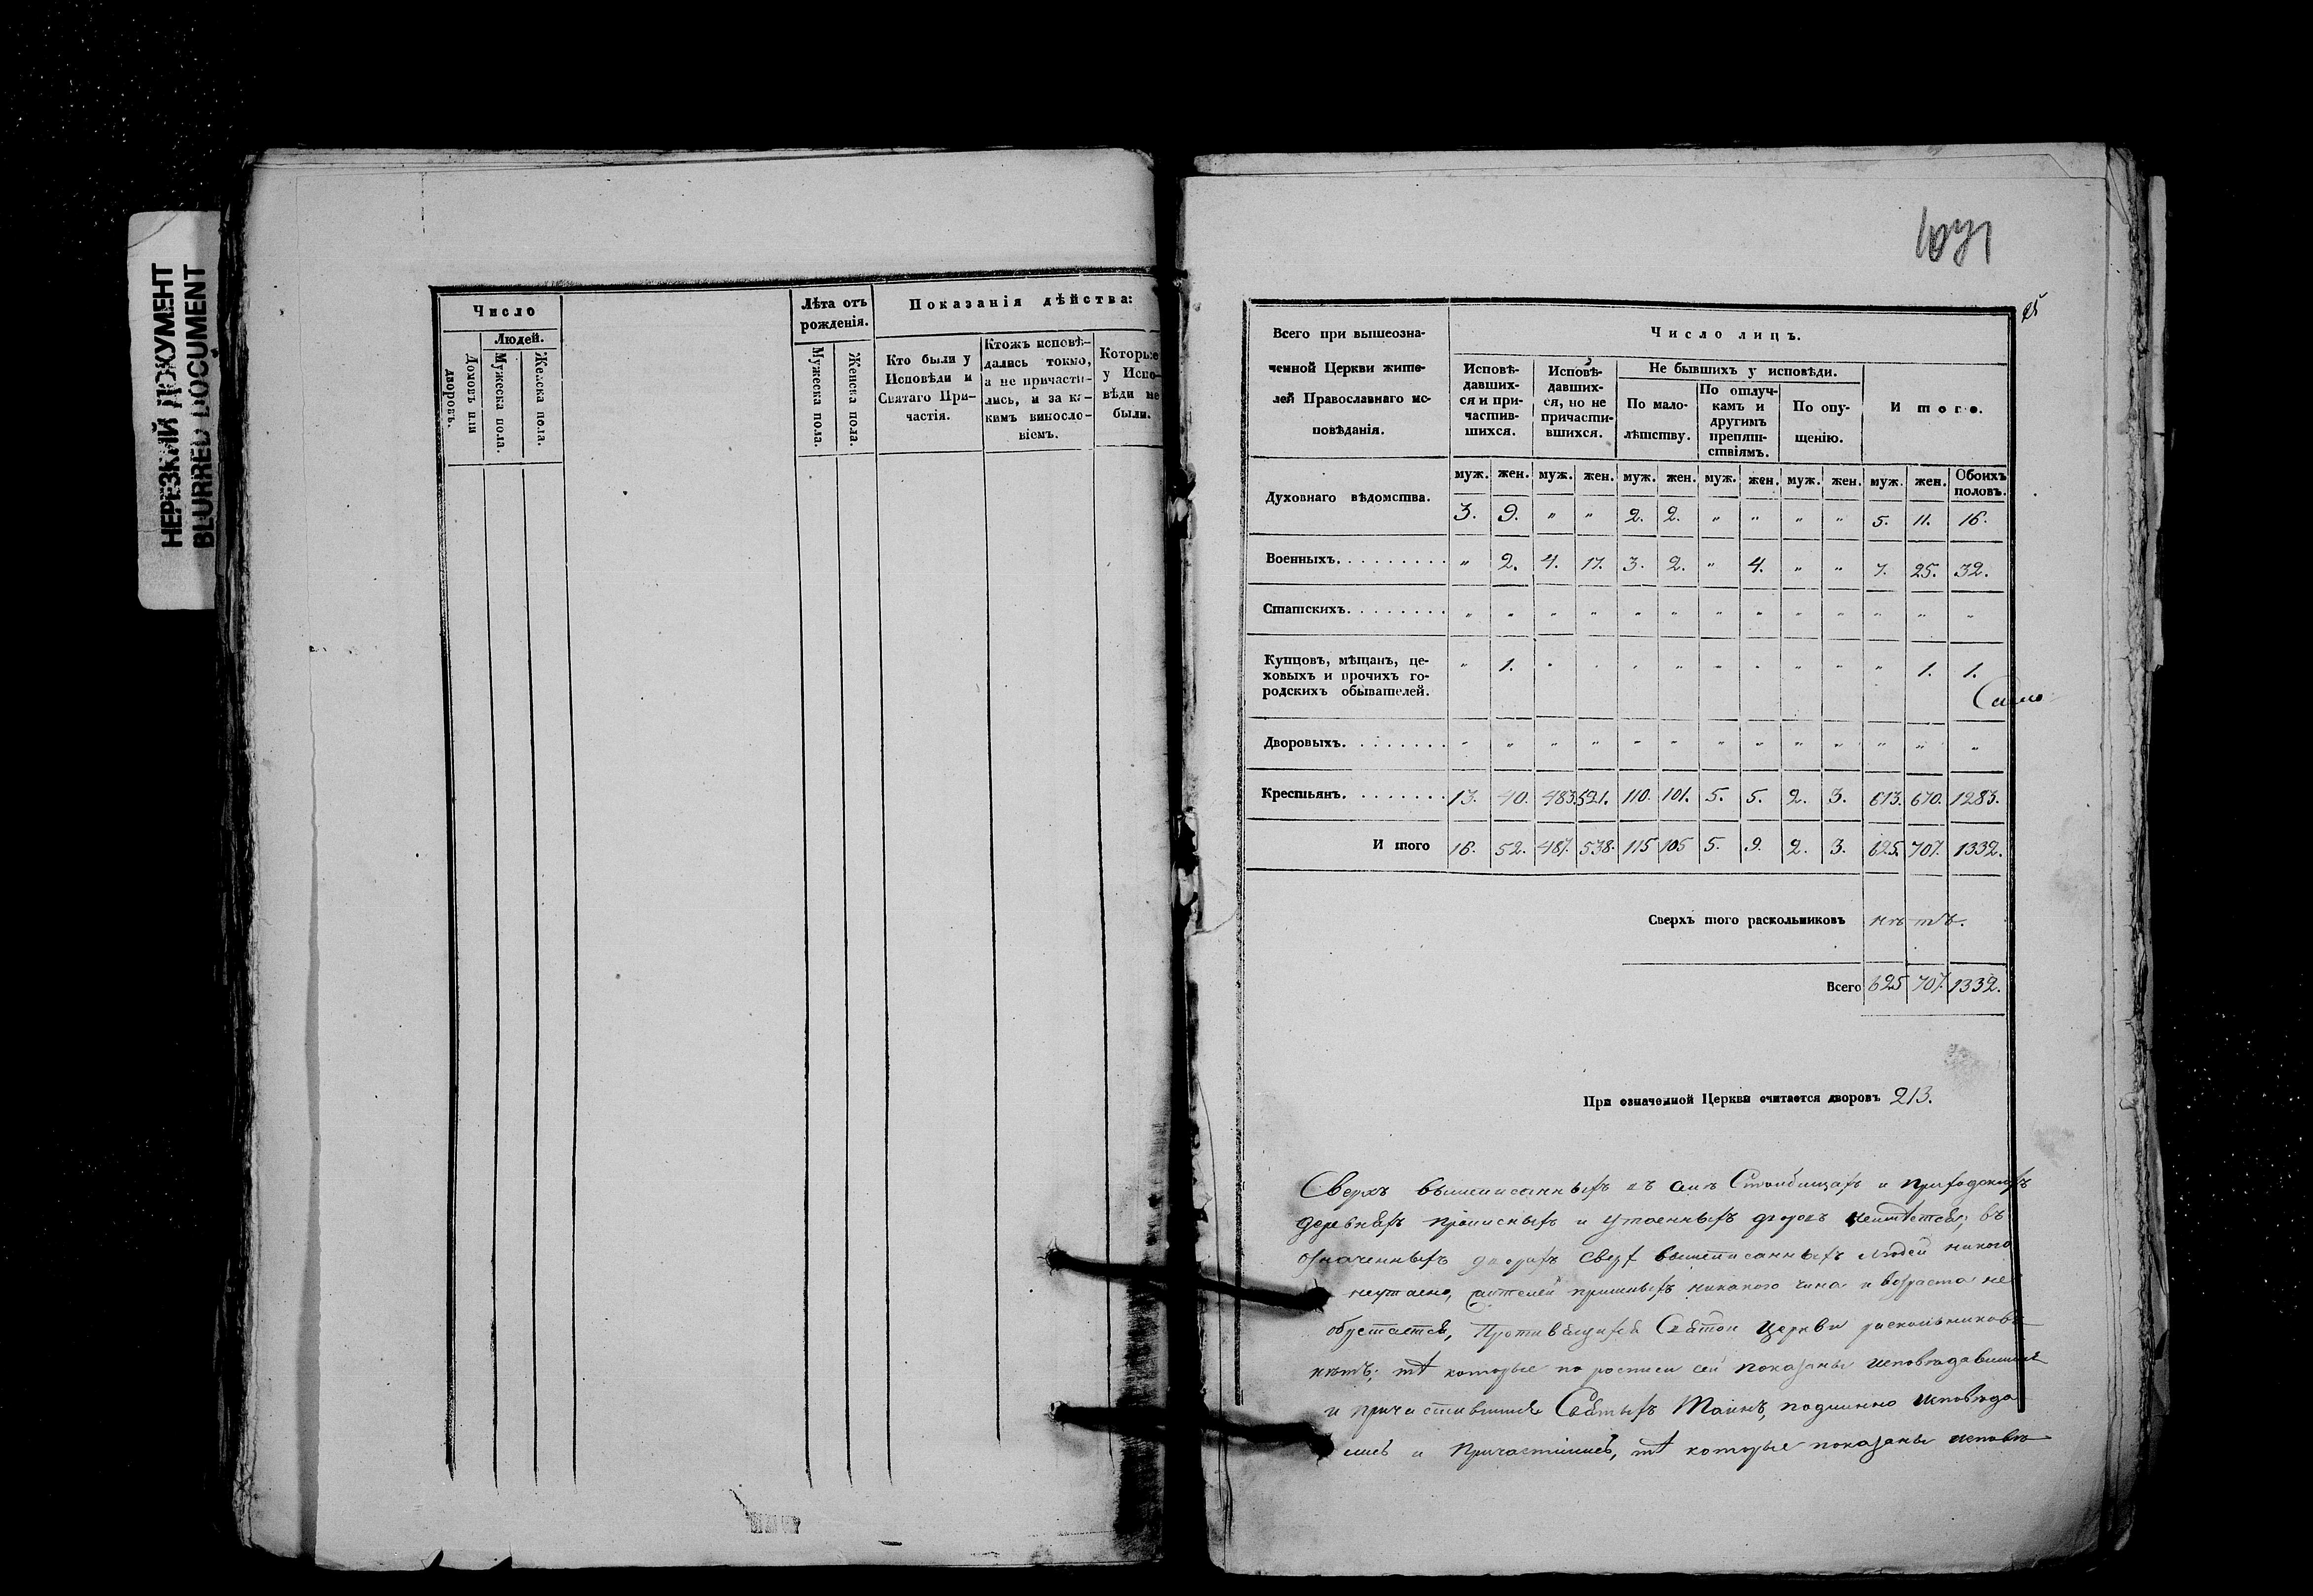 НЕРЕЗКИЙ ДОКУМЕНТ
BLURRED DOCUMENT
Число
Людей.
Домовъ или дворовъ.
Мужеска пола.
Женска пола.
Лѣта отъ
рожденія.
Мужеска пола.
Женска пола.
Показанія дѣйства:
Кто были у
Исповѣди и
Святаго При-
частія.
Ктожъ исповѣ-
дались токмо,
а не причасти-
лись, и за ка-
кимъ винosло-
віемъ.
Которые
у Испо-
вѣди не
были.
Всего при вышеозна-
ченной Церкви жите-
лей Православнаго ис-
повѣданія.
Число лицъ.
Исповѣ-
давших-
ся и при-
частив-
шихся.
Исповѣ-
давших-
ся, но не
причасти-
вшихся.
Не бывшихъ у исповѣди.
По мало-
лѣтству.
По отлуч-
камъ и
другимъ
препят-
ствіямъ.
По опу-
щенію.
Итого.
муж. жен. муж. жен. муж. жен. муж. жен. муж. жен. муж. жен. Обоихъ половъ.
Духовнаго вѣдомства. 3. 9. " " 2. 2. " " " " 5. 11. 16.
Военныхъ. " 2. 4. 17. 3. 2. " 4. " " 7. 25. 32.
Статскихъ. " " " " " " " " " " " " "
Купцовъ, мѣщанъ, це-
ховыхъ и прочихъ го-
родскихъ обывателей. " 1. " " " " " " " " " 1. 1.
Дворовыхъ. " " " " " " " " " " " " "
Крестьянъ. 13. 40. 483. 521. 110. 101. 5. 5. 2. 3. 613. 670. 1283.
И того 16. 52. 487. 538. 115 105 5. 9. 2. 3. 625. 707. 1332.
Сверхъ того раскольниковъ нѣтъ.
Всего 625 707. 1332.
При означенной Церкви считается дворовъ 213.
Сверхъ вышеписанныхъ въ семъ и приходскихъ
деревняхъ прописныхъ и утаенныхъ дворовъ неимѣется; въ
означенныхъ дворахъ сверх вышеписанныхъ людей никого
неутаено, никакого чина и возраста не
Церкви раскольниковъ
нѣтъ; тѣ которые по росписи сей показаны исповѣдавшимися
и причастившимися Святыхъ Таинъ, подлинно исповѣда
лись и Причастились, тѣ которые показаны исповѣ